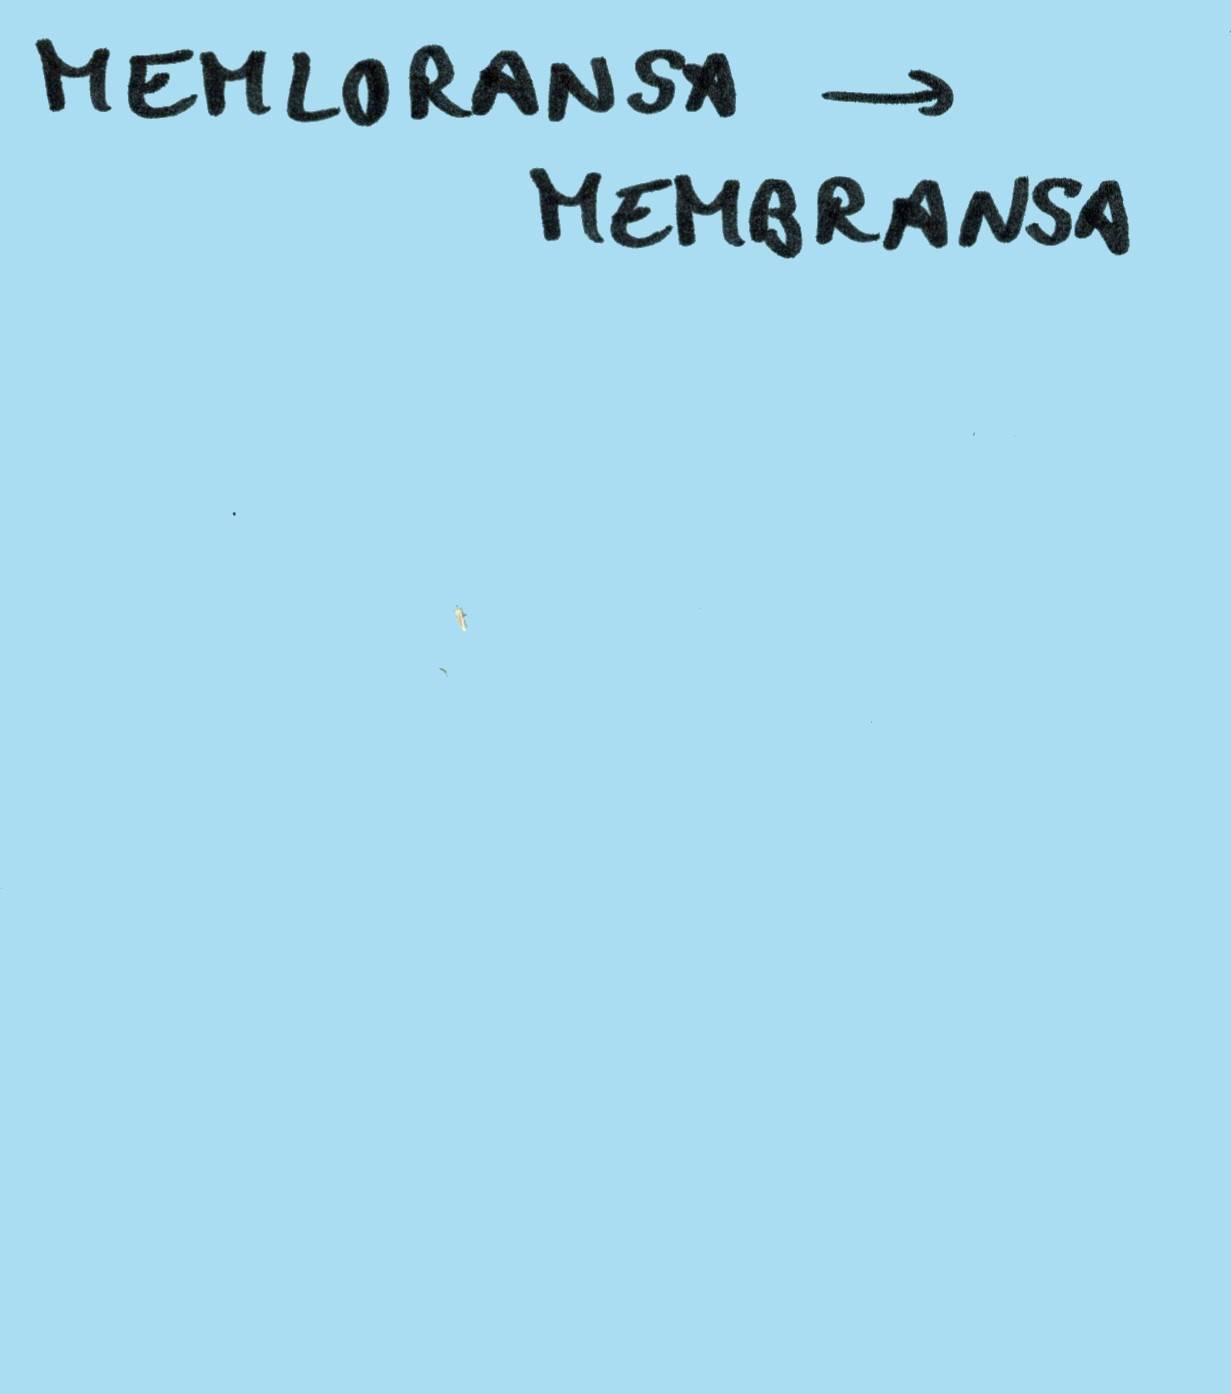 MEMLORANSA →
MEMBRANSA